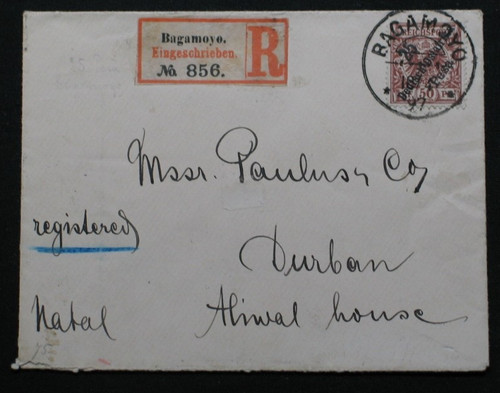 Bagamoyo.
Eingeschrieben.
R
No 856.
BAGAMOYO
50
Mssr. Paulus & Co
registered
Durban
Natal
Aliwal house